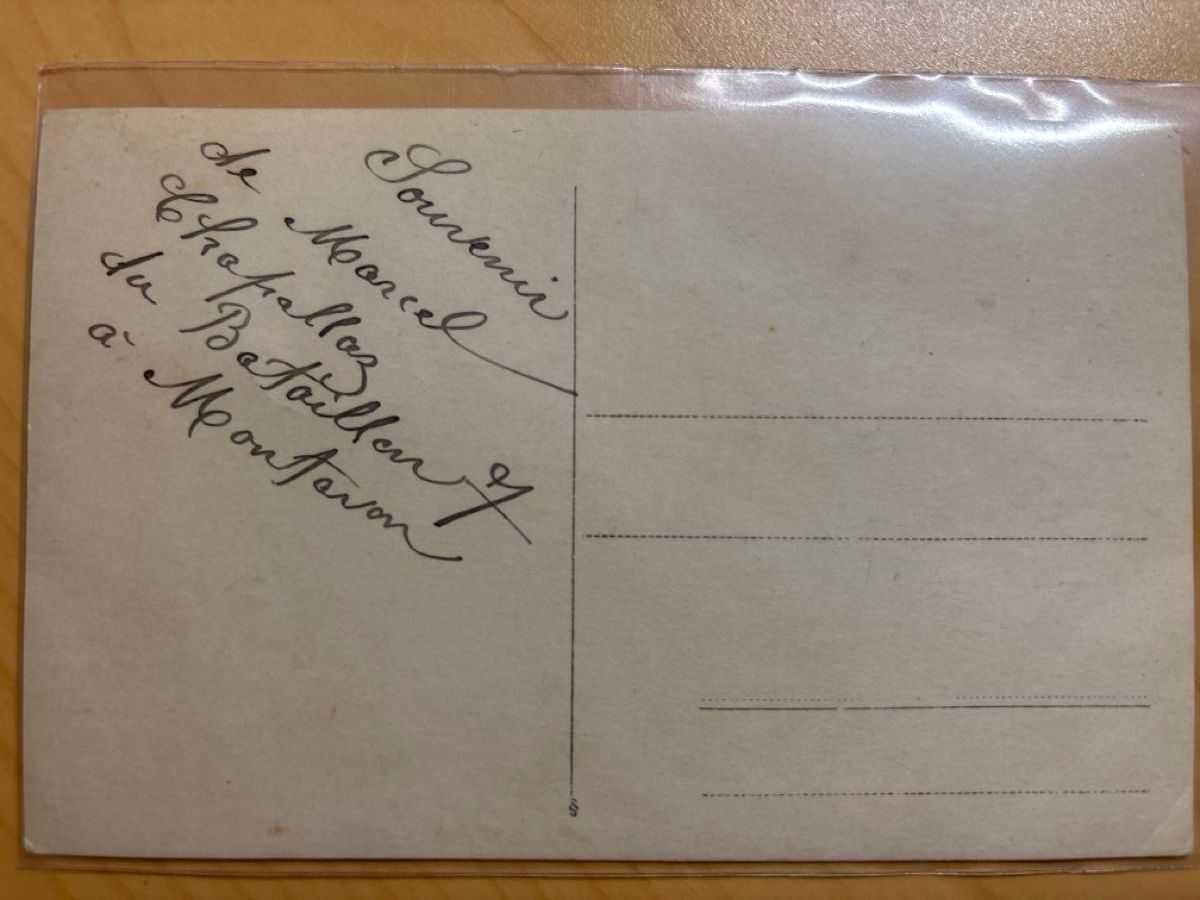 Souvenir
de Marcel
Chapallaz
du Bataillon 7
à Montavon